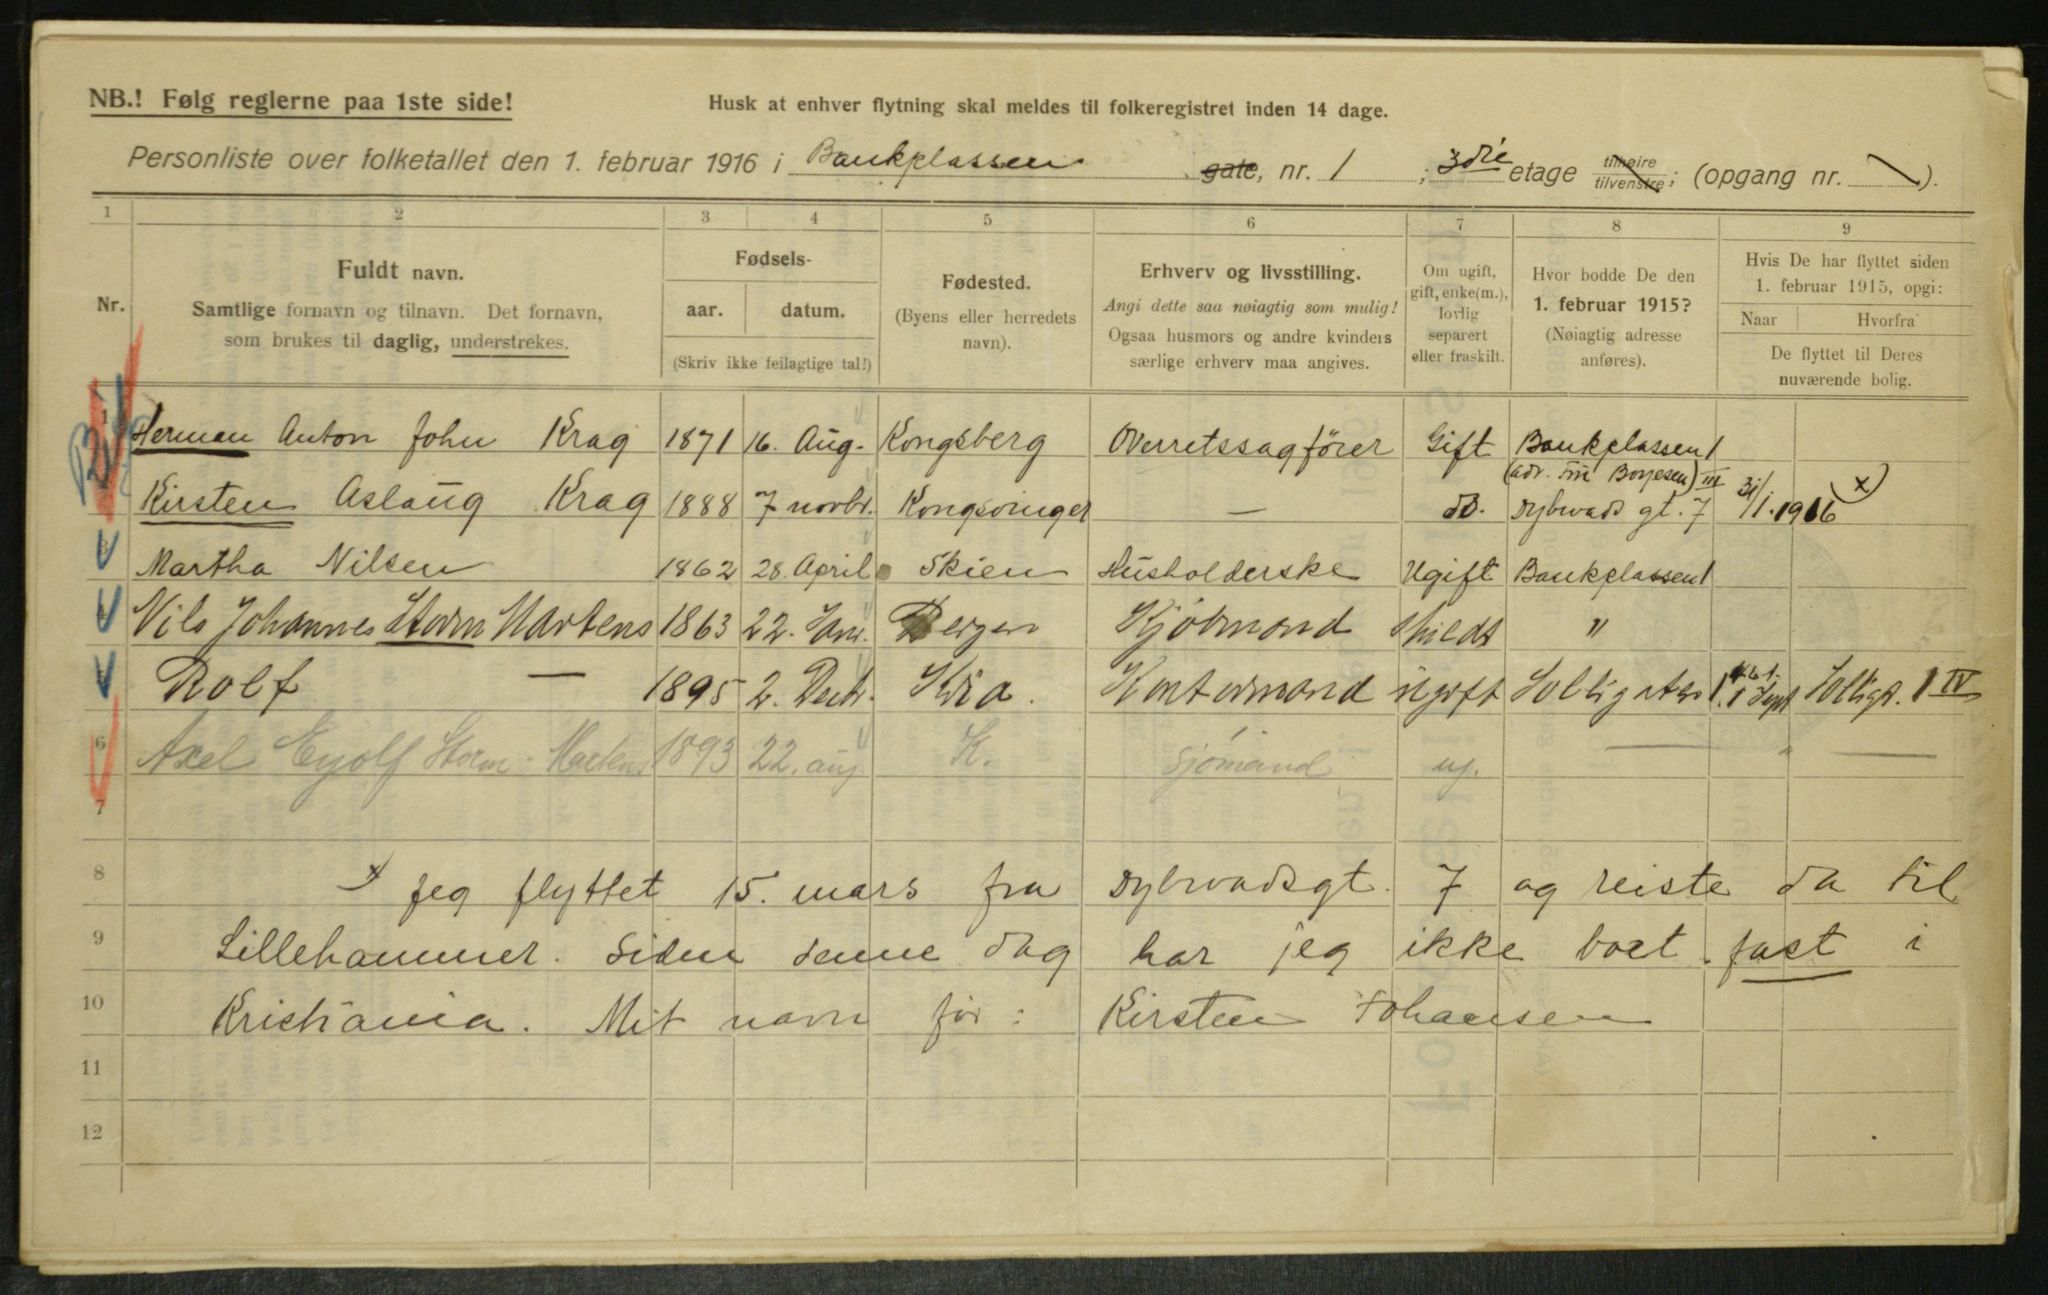 NB.! Følg reglerne paa 1ste side!
Husk at enhver flytning skal meldes til folkeregistret inden 14 dage.
Personliste over folketallet den 1. februar 1916 i Bankplassen gate, nr. 1 ; 3die etage tilhøire tilvenstre; (opgang nr. ).
1 2 3 4 5 6 7 8 9
Nr.
Fuldt navn.
Samtlige fornavn og tilnavn. Det fornavn,
som brukes til daglig, understrekes.
Fødsels-
aar. datum.
(Skriv ikke feilagtige tal!)
Fødested.
(Byens eller herredets
navn).
Erhverv og livsstilling.
Angi dette saa nøiagtig som mulig!
Ogsaa husmors og andre kvinders
særlige erhverv maa angives.
Om ugift,
gift, enke(m.),
lovlig
separert
eller fraskilt.
Hvor bodde De den
1. februar 1915?
(Nøiagtig adresse
anføres).
Hvis De har flyttet siden
1. februar 1915, opgi:
Naar Hvorfra
De flyttet til Deres
nuværende bolig.
1 Herman Anton John Krag 1871 16. Aug. Kongsberg Overretssagfører Gift Bankplassen 1
(adr. Borjesen) III
Kirsten Aslaug Krag 1888 7 novbr. Kongsvinger — do. Dybwads gt. 7 31/1. 1916 x)
Martha Nilsen 1862 28. April Skien Husholderske Ugift Bankplassen 1
Nils Johannes Storm Martens 1863 22. Janr. Bergen Kjöbmand skildt "
Rolf — 1895 2. Decbr. Kria. Kontormand ugift Solligaten 1. 1 Sept Solligt. 1 IV
6 Axel Eyolf Storm-Martens 1893 22. aug K. Sjömand ug. — " —
7
8 x) Jeg flyttet 15. mars fra Dybwadsgt. 7 og reiste da til
9 Lillehammer. Siden denne dag har jeg ikke boet fast i
10 Kristiania. Mit navn før: Kirsten Johansen
11
12